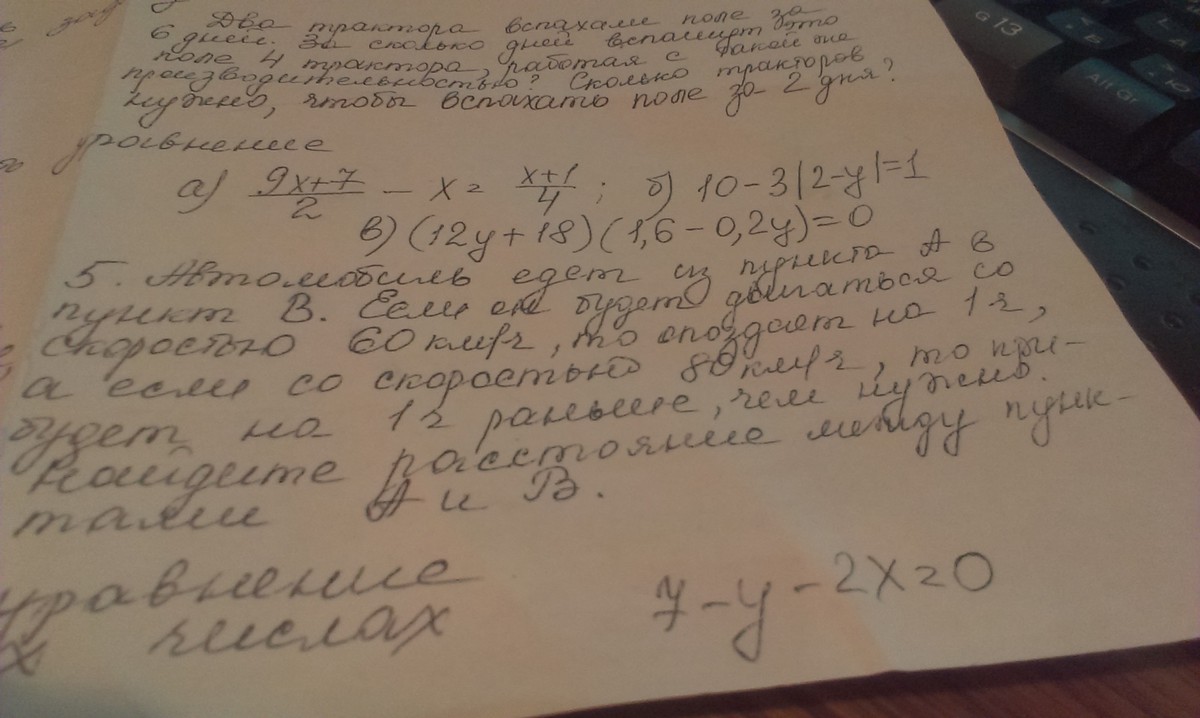 Два трактора вспахали поле за
6 дней. За сколько дней вспашут это
поле 4 трактора, работая с такой же
производительностью? Сколько тракторов
нужно, чтобы вспахать поле за 2 дня?
уравнение
а) (9x+7)/2 - x = (x+1)/4 ; б) 10-3|2-y|=1
в) (12y+18)(1,6-0,2y)=0
5. Автомобиль едет из пункта А в
пункт В. Если он будет двигаться со
скоростью 60 км/ч, то опоздает на 1 ч,
а если со скоростью 80 км/ч, то при-
будет на 1 ч раньше, чем нужно.
Найдите расстояние между пунк-
тами А и В.
уравнение
х числах
7-y-2x=0
G13
Alt Gr
Ю